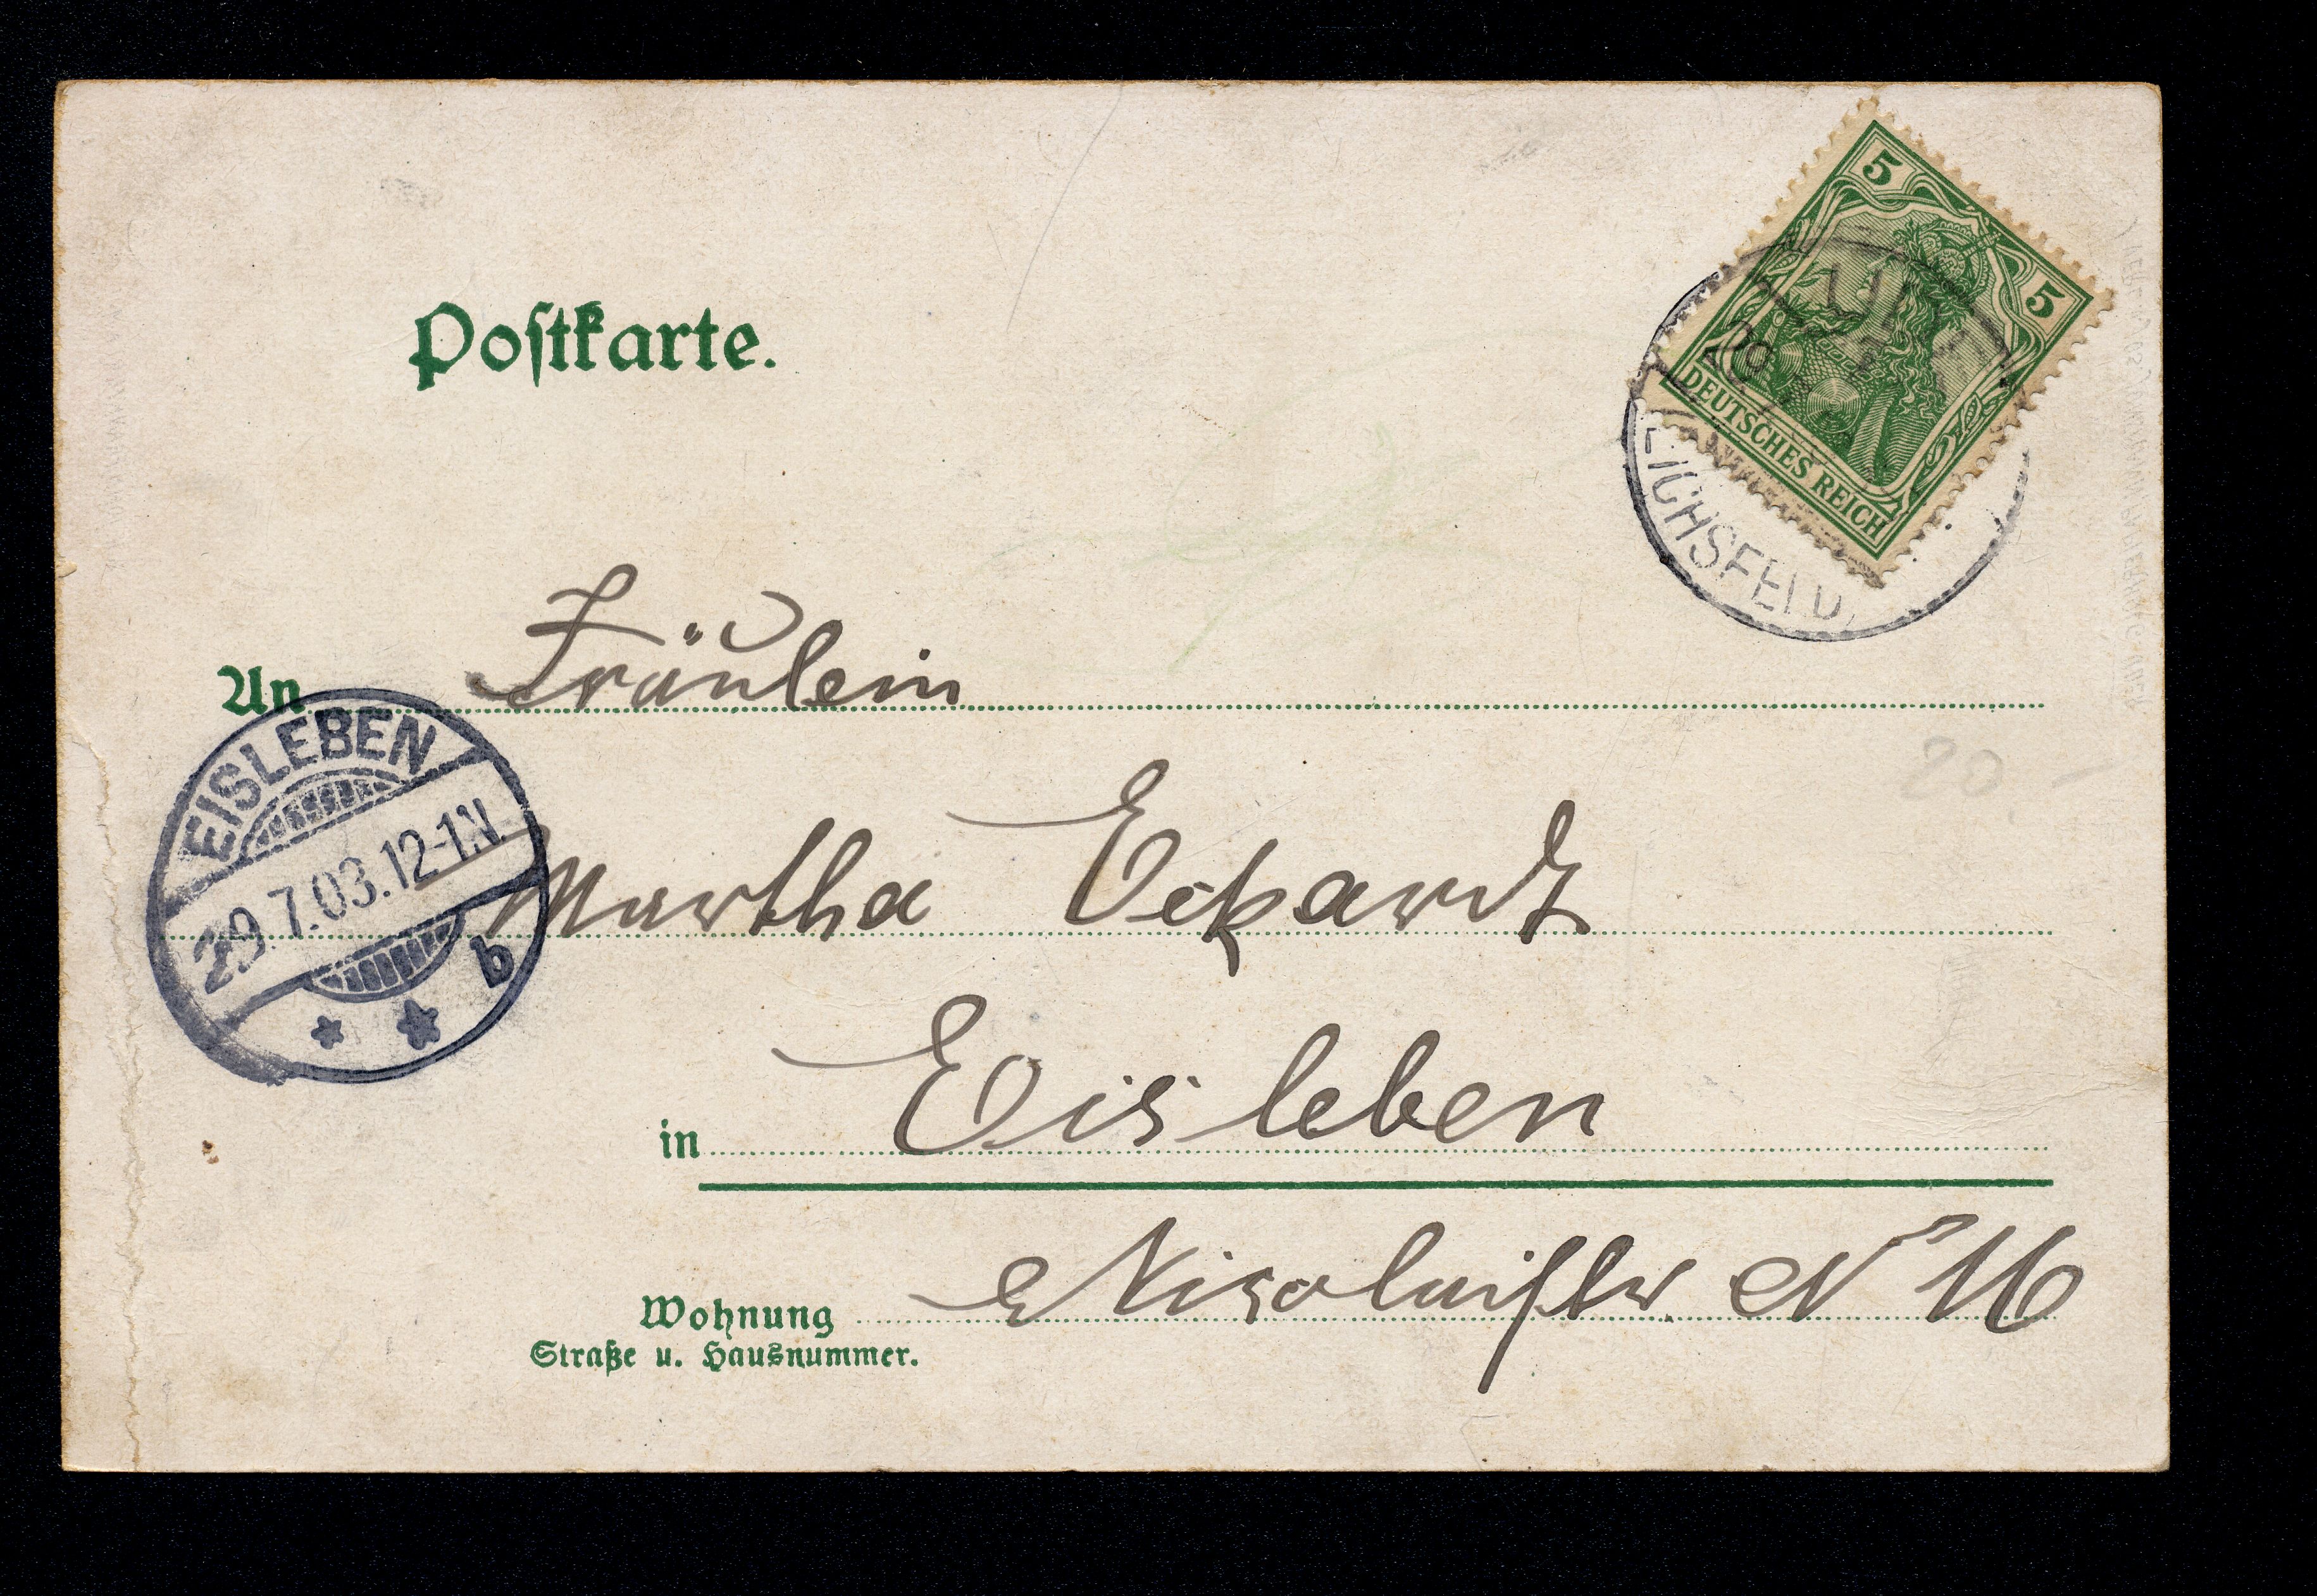 Postkarte.
5
5
DEUTSCHES REICH
EICHSFELD
An Fräulein
EISLEBEN
29.7.03.12-1N.
b
Martha Eckardt
in Eisleben
Nicolaistr N 16
Wohnung
Straße u. Hausnummer.
20 –